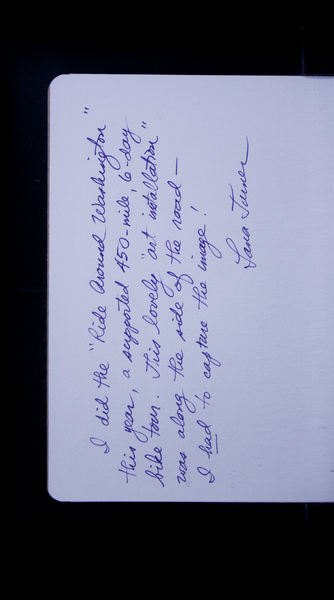 I did the "Ride Around Washington"
this year, a supported 450-mile, 6-day
bike tour. This lovely "art installation"
was along the side of the road—
I had to capture the image!
Lana Turner